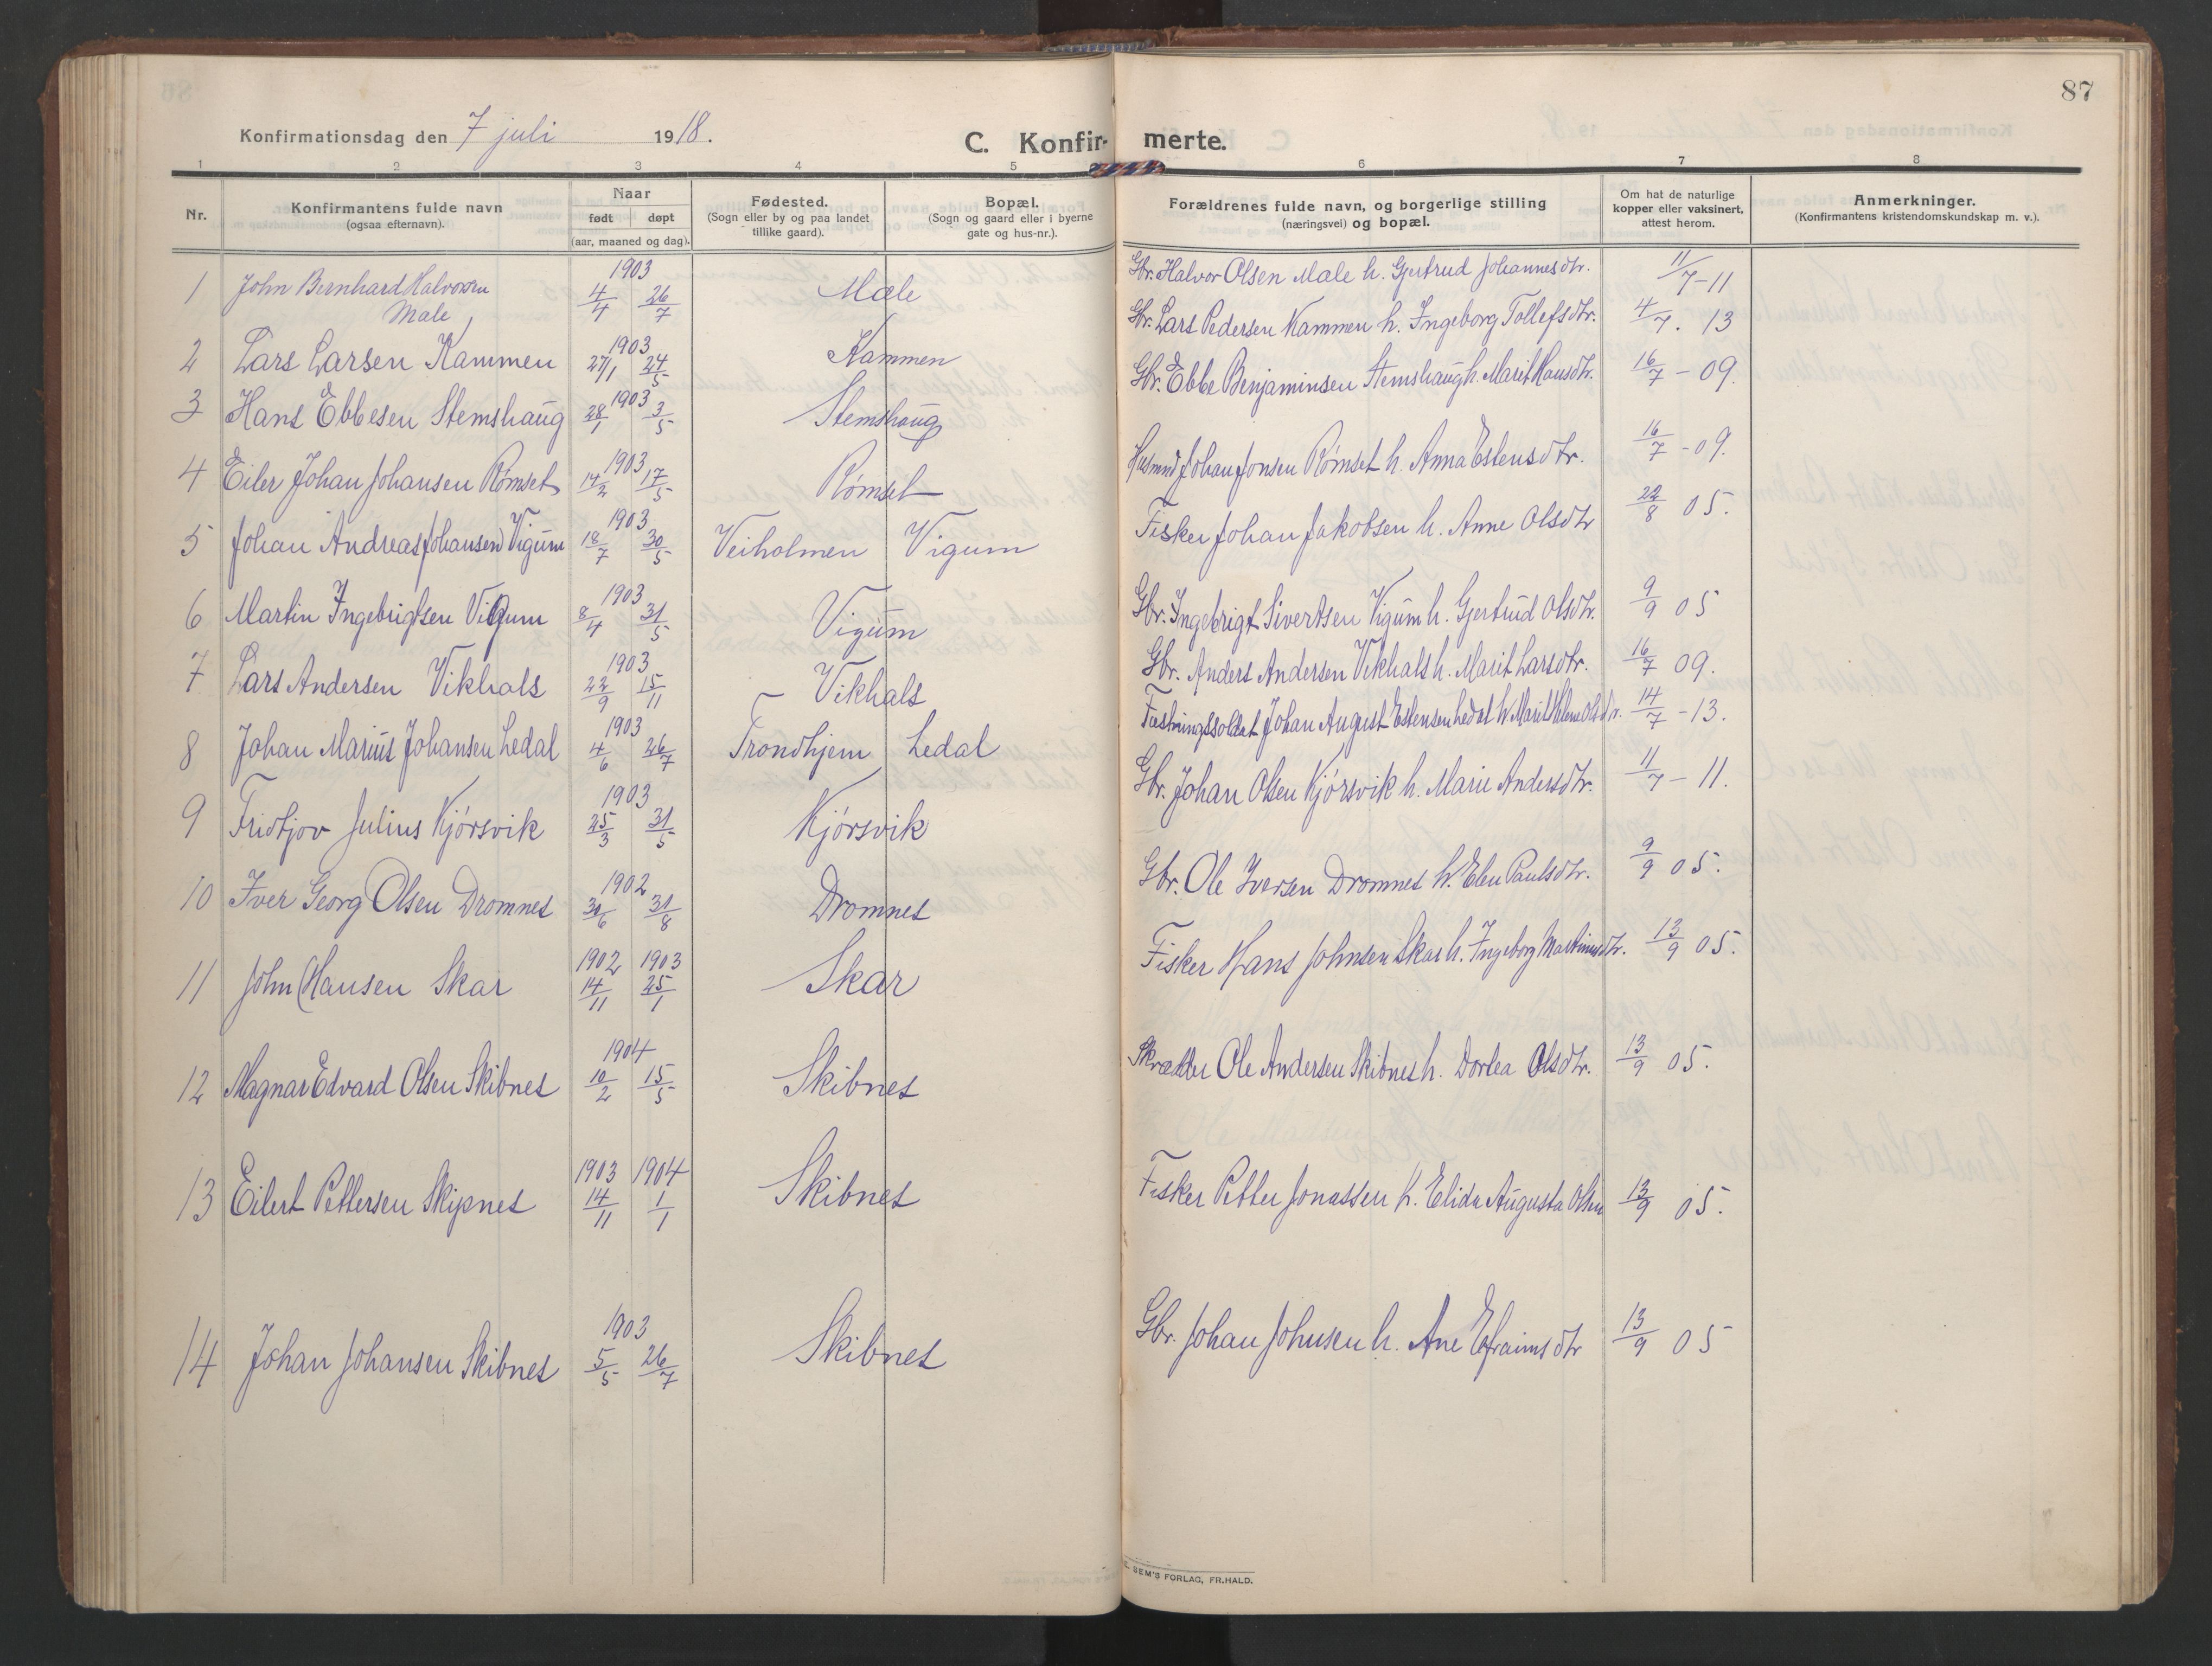 87
Konfirmationsdag den 7 juli 1918.
C. Konfir- merte.
1 2 3 4 5 6 7 8
Nr.
Konfirmantens fulde navn
(ogsaa efternavn).
Naar
født døpt
(aar, maaned og dag).
Fødested.
(Sogn eller by og paa landet
tillike gaard).
Bopæl.
(Sogn og gaard eller i byerne
gate og hus-nr.).
Forældrenes fulde navn, og borgerlige stilling
(næringsvei) og bopæl.
Om hat de naturlige
kopper eller vaksinert,
attest herom.
Anmerkninger.
(Konfirmantens kristendomskundskap m. v.).
1 John Bernhard Halvorsen Male 1903 4/4 26/7 Male Gbr. Halvor Olsen Male h. Gjertrud Johannesdtr. 11/7-11
2 Lars Larsen Kammen 1903 27/1 24/5 Kammen Gbr. Lars Pedersen Kammen h. Ingeborg Tollefsdtr. 4/7. 13
3 Hans Ebbesen Stemshaug 1903 28/1 3/5 Stemshaug Gbr. Ebbe Benjaminsen Stemshaug h. Marit Hansdtr. 16/7-09.
4 Eiler Johan Johansen Rømset 1903 14/2 17/5 Rømset Husmd Johan Jonsen Rømset h. Anna Estensdtr. 16/7-09.
5 Johan Andreas Johansen Vigum 1903 18/7 30/5 Veiholmen Vigum Fisker Johan Jakobsen h. Anne Olsdtr 22/8 05.
6 Martin Ingebrigtsen Vigum 1903 8/4 31/5 Vigum Gbr. Ingebrigt Sivertsen Vigum h. Gjertrud Olsdtr. 9/9 05
7 Lars Andersen Vikhals 1903 22/9 15/11 Vikhals Gbr. Anders Andersen Vikhals h. Marit Larsdtr. 16/7 09.
8 Johan Marius Johansen Ledal 1903 4/6 26/7 Trondhjem Ledal Fæstningssoldat Johan August Estensen Ledal h. Marit Helene Olsdtr. 14/7-13.
9 Fridtjov Julius Kjørsvik 1903 25/3 31/5 Kjørsvik Gbr. Johan Olsen Kjørsvik h. Marie Andersdtr. 11/7-11.
10 Iver Georg Olsen Dromnes 1902 30/6 31/8 Dromnes Gbr. Ole Iversen Dromnes h. Elen Paulsdtr. 9/9 05.
11 John Hansen Skar 1902 14/11 1903 25/1 Skar Fisker Hans Johnsen Skar h. Ingeborg Martinusdtr. 13/9 05.
12 Magnar Edvard Olsen Skibnes 1904 10/2 15/5 Skibnes Skrædder Ole Andersen Skibnes h. Dortea Olsdtr. 13/9 05.
13 Eilert Pettersen Skipnes 1903 14/11 1904 1/1 Skibnes Fisker Petter Jonassen h. Elida Augusta Olsen 13/9 05.
14 Johan Johansen Skibnes 1903 5/5 26/7 Skibnes Gbr. Johan Johnsen h. Ane Efraimsdtr 13/9 05
SEM'S FORLAG, FR.HALD.